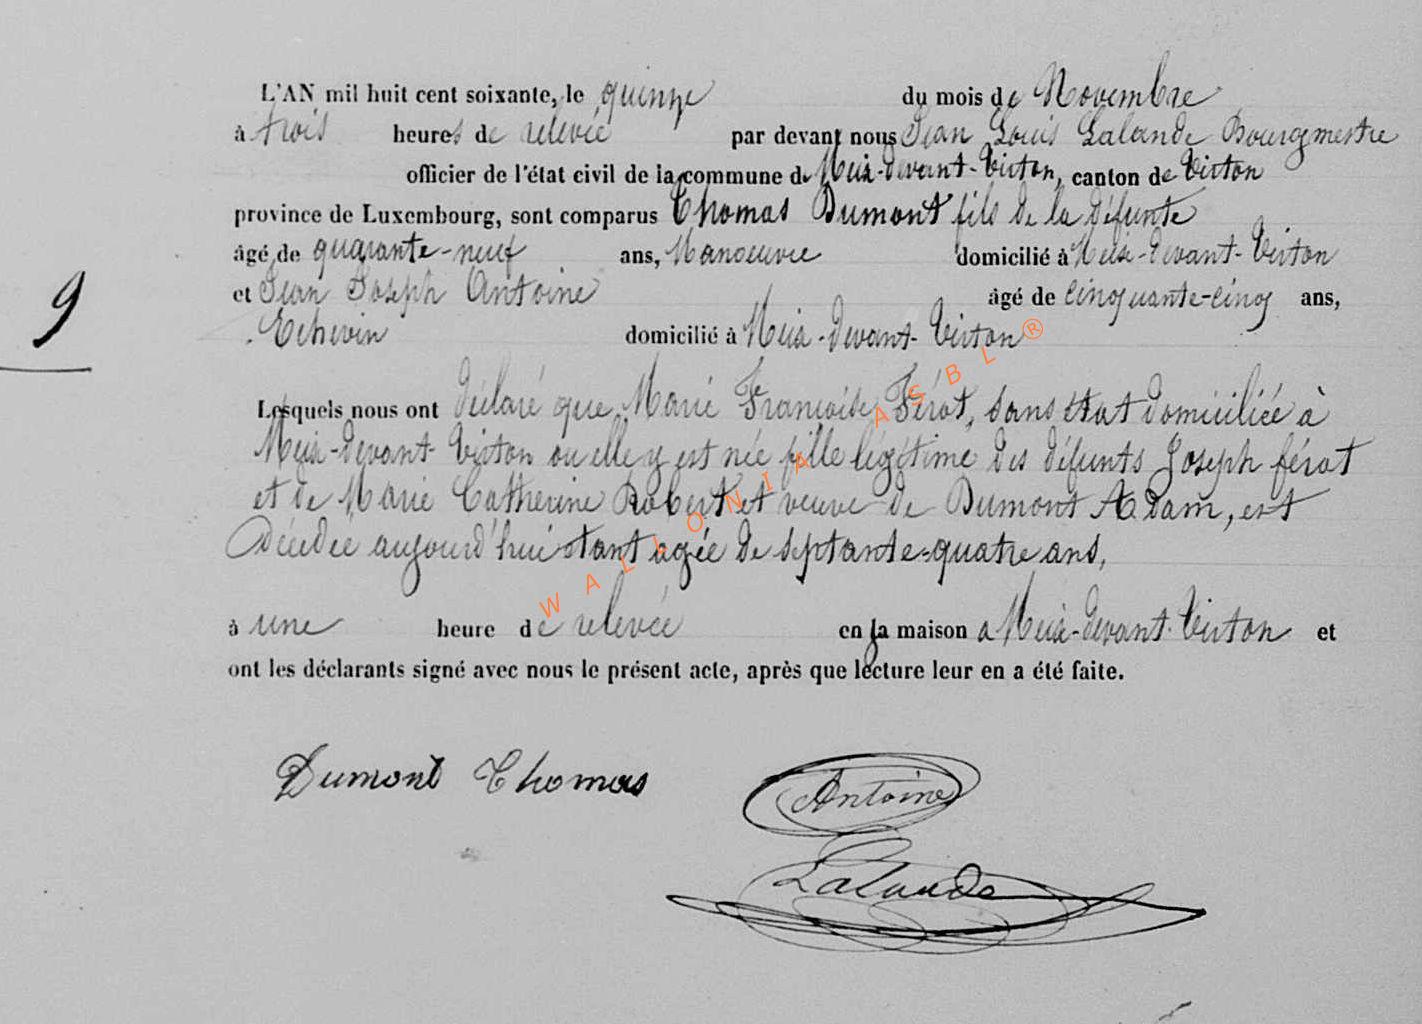 L'AN mil huit cent soixante, le quinze du mois de Novembre
à trois heures de relevée par devant nous Jean Louis Lalande Bourgmestre
officier de l'état civil de la commune de Meix-devant-Virton, canton de Virton
province de Luxembourg, sont comparus Thomas Dumont fils de la défunte
âgé de quarante-neuf ans, Manoeuvre domicilié à Meix-devant-Virton
et Jean Joseph Antoine âgé de cinquante-cinq ans,
Echevin domicilié à Meix-devant-Virton
9
Lesquels nous ont déclaré que Marie Françoise Férot, sans état domiciliée à
Meix-devant-Virton ou elle y est née fille légitime des défunts Joseph férot
et de Marie Catherine Robert et veuve de Dumont Adam, est
Décédée aujourd'hui étant agée de septante-quatre ans,
à une heure de relevée en la maison a Meix-devant-Virton et
ont les déclarants signé avec nous le présent acte, après que lecture leur en a été faite.
Dumont Thomas Antoine
Lalande
WALLONIA ASBL®